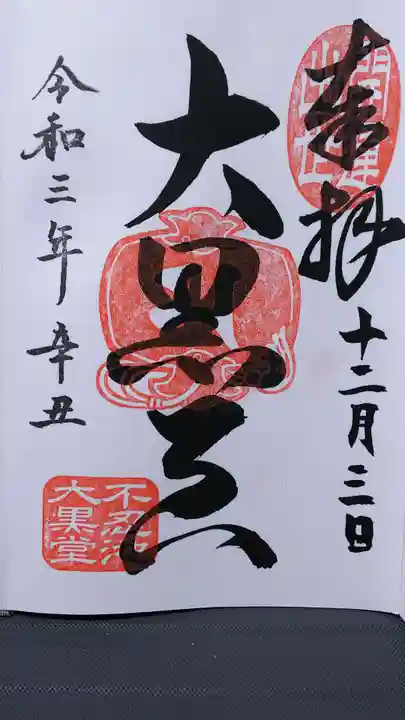 奉拝
十二月三日
開運
出世
大黒天
令和三年辛丑
不忍池
大黒堂